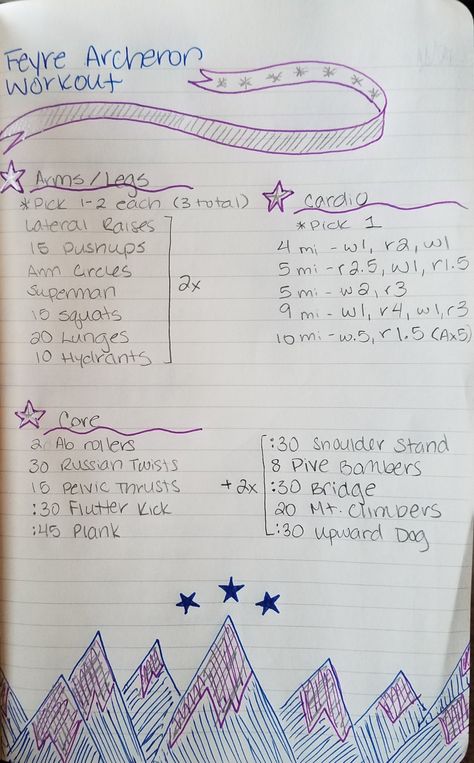 Feyre Archeron
Workout
Arms/Legs
*Pick 1-2 each (3 total)
Lateral Raises
15 Pushups
Arm Circles
Superman
15 Squats
20 Lunges
10 Hydrants
2x
Cardio
*Pick 1
4 mi - w1, r2, w1
5 mi - r2.5, w1, r1.5
5 mi - w2, r3
9 mi - w1, r4, w1, r3
10 mi - w.5, r1.5 (Ax5)
Core
20 Ab rollers
30 Russian Twists
15 Pelvic Thrusts
:30 Flutter Kick
:45 Plank
+2x
:30 Shoulder Stand
8 Dive Bombers
:30 Bridge
20 Mt. Climbers
:30 Upward Dog